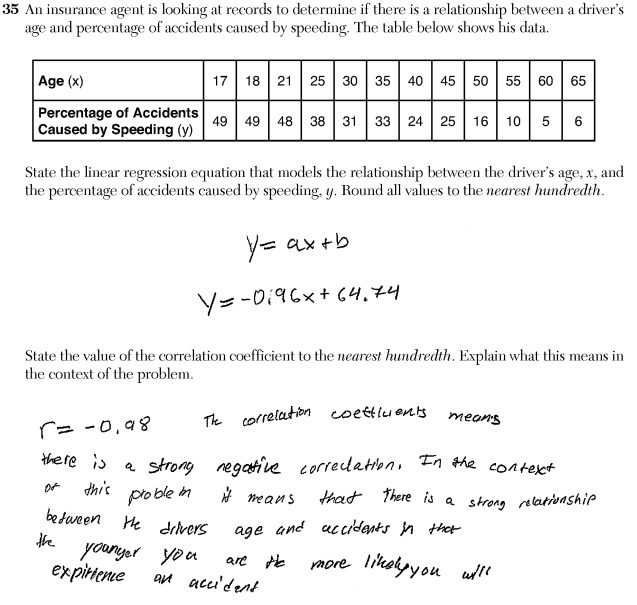 35 An insurance agent is looking at records to determine if there is a relationship between a driver's
age and percentage of accidents caused by speeding. The table below shows his data.
Age (x) 17 18 21 25 30 35 40 45 50 55 60 65
Percentage of Accidents
Caused by Speeding (y) 49 49 48 38 31 33 24 25 16 10 5 6
State the linear regression equation that models the relationship between the driver's age, x, and
the percentage of accidents caused by speeding, y. Round all values to the nearest hundredth.
y = ax + b
y = -0.96x + 64.74
State the value of the correlation coefficient to the nearest hundredth. Explain what this means in
the context of the problem.
r = -0.98 The correlation coefficients means
there is a strong negative correclation. In the context
of this problem it means that there is a strong relationship
between the drivers age and accidents in that
the younger you are the more likely you will
expirience an accident